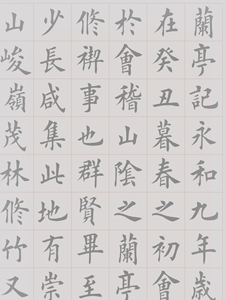 蘭亭記永和九年歲
在癸丑暮春之初會
於會稽山陰之蘭亭
脩禊事也群賢畢至
少長咸集此地有崇
山峻嶺茂林脩竹又